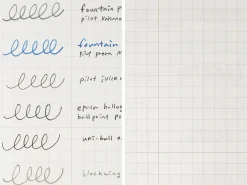 fountain p
pilot kakuno
fountain
pilot prera
pilot juice
ballpoint
uni-ball
blackwing